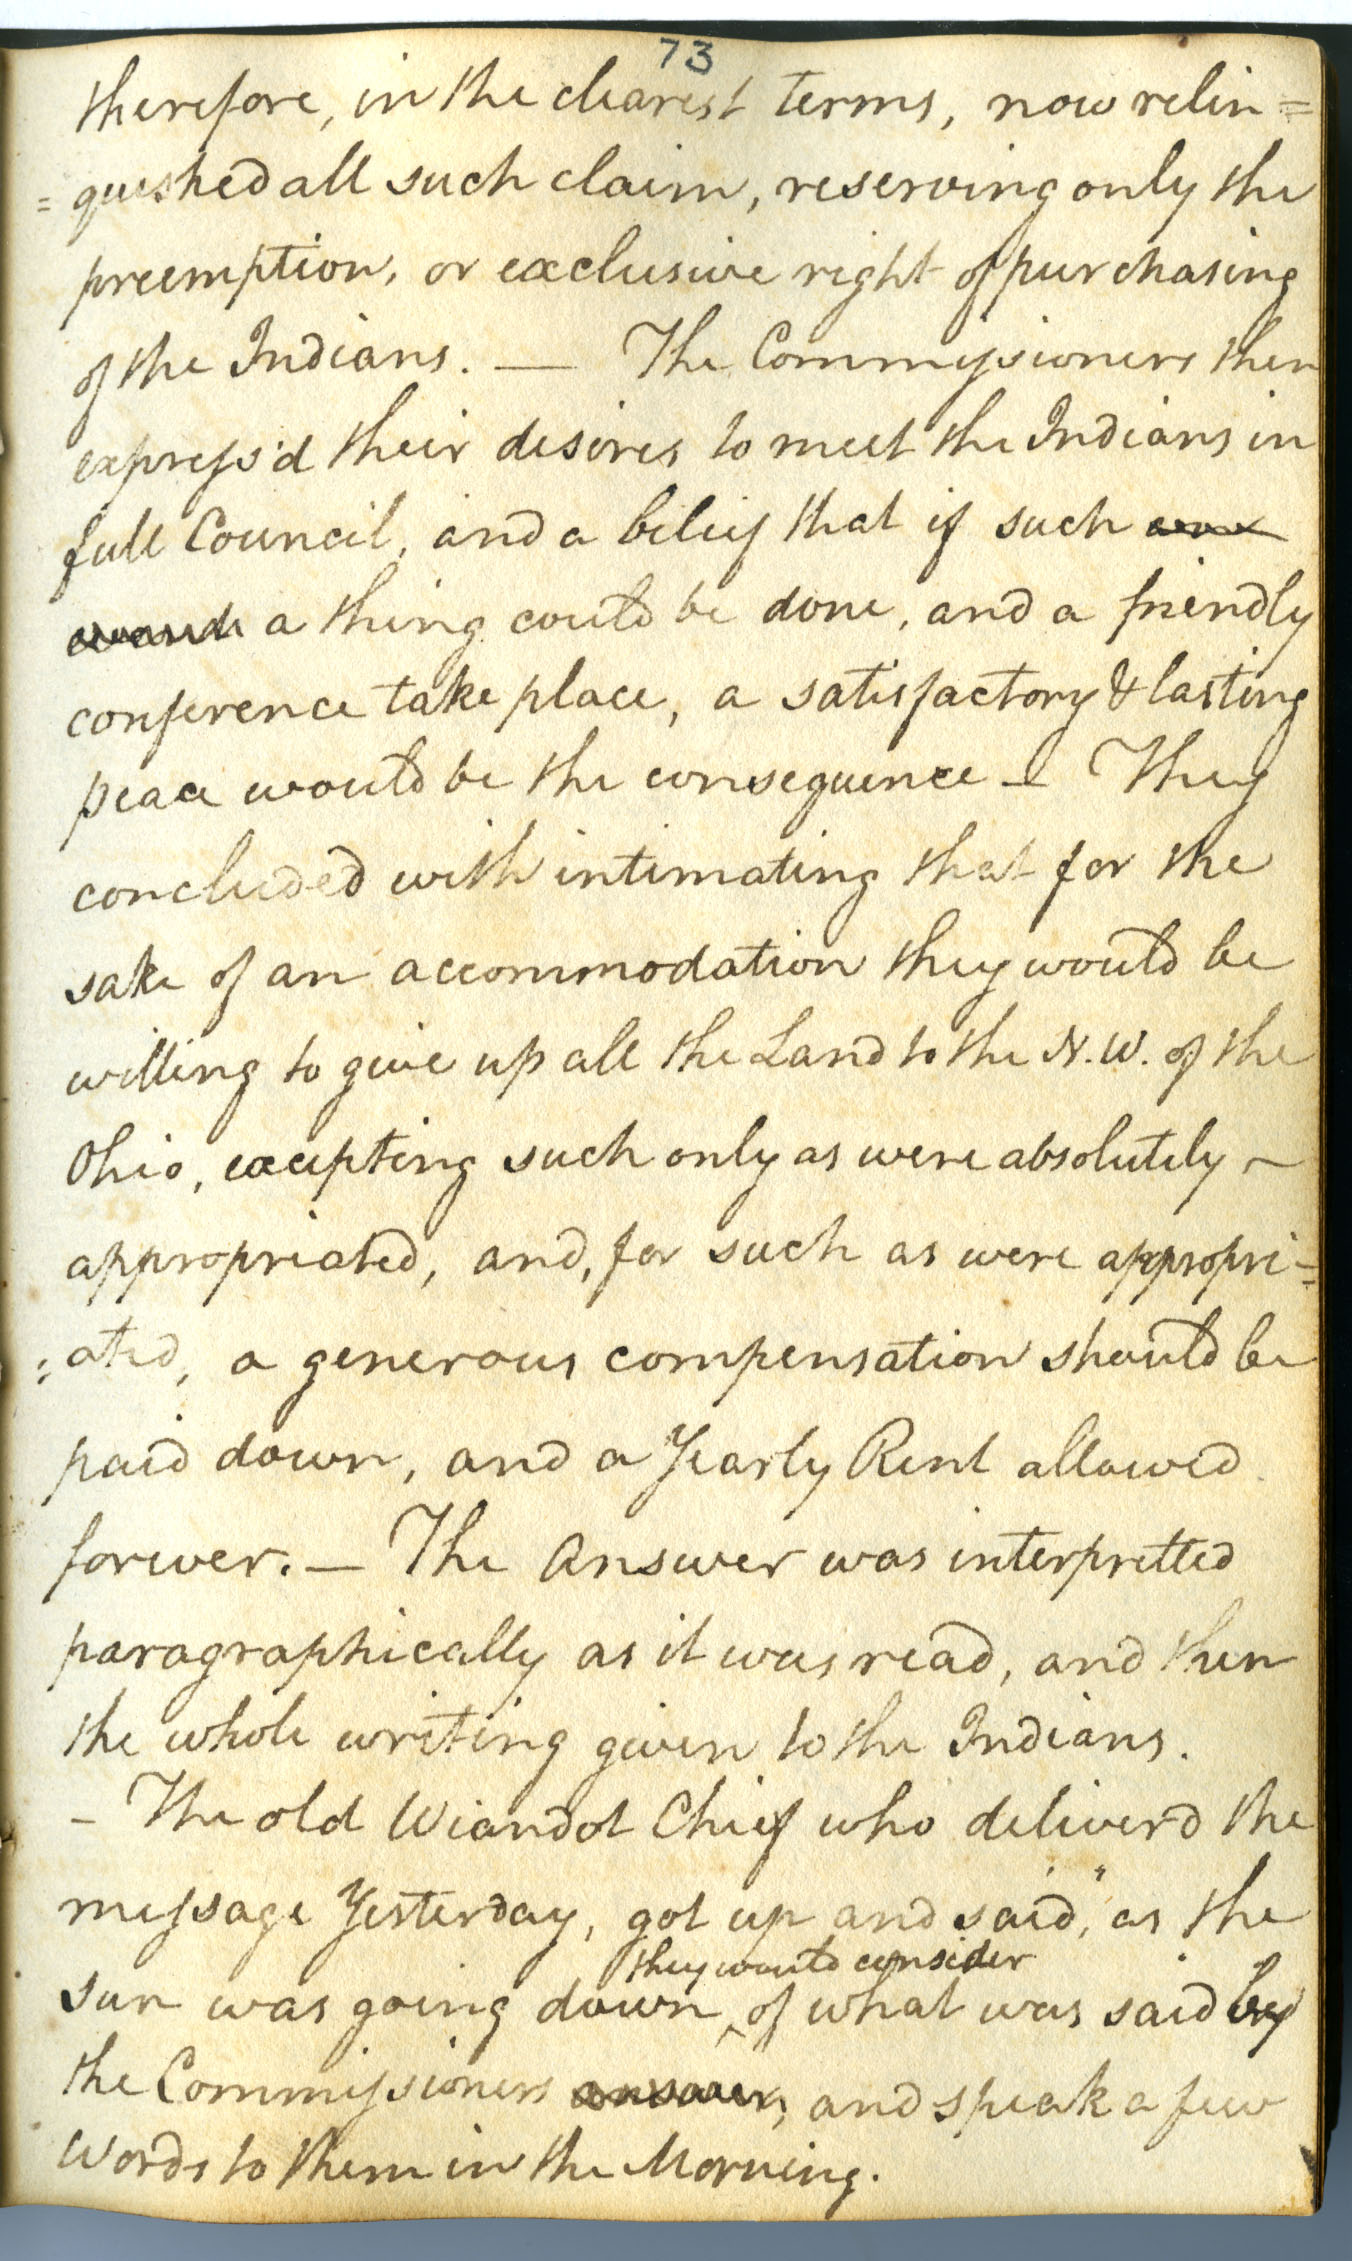 73
therefore, in the clearest terms, now relin=
=quished all such claim, reserving only the
preemption, or exclusive right of purchasing
of the Indians. — The Commissioners then
express'd their desires to meet the Indians in
full Council, and a belief that if such
a thing could be done, and a friendly
conference take place, a satisfactory & lasting
peace would be the consequence — They
concluded with intimating that for the
sake of an accommodation they would be
willing to give up all the Land to the N.W. of the
Ohio, excepting such only as were absolutely ~
appropriated, and, for such as were appropri=
=ated, a generous compensation should be
paid down, and a Yearly Rent allowed
forever. — The Answer was interpretted
paragraphically as it was read, and then
the whole writing given to the Indians.
- The old Wiandot Chief who deliver'd the
message Yesterday, got up and said, "as the
they would consider
sun was going down ^ of what was said by
the Commissioners answer, and speak a few
Words to them in the Morning.